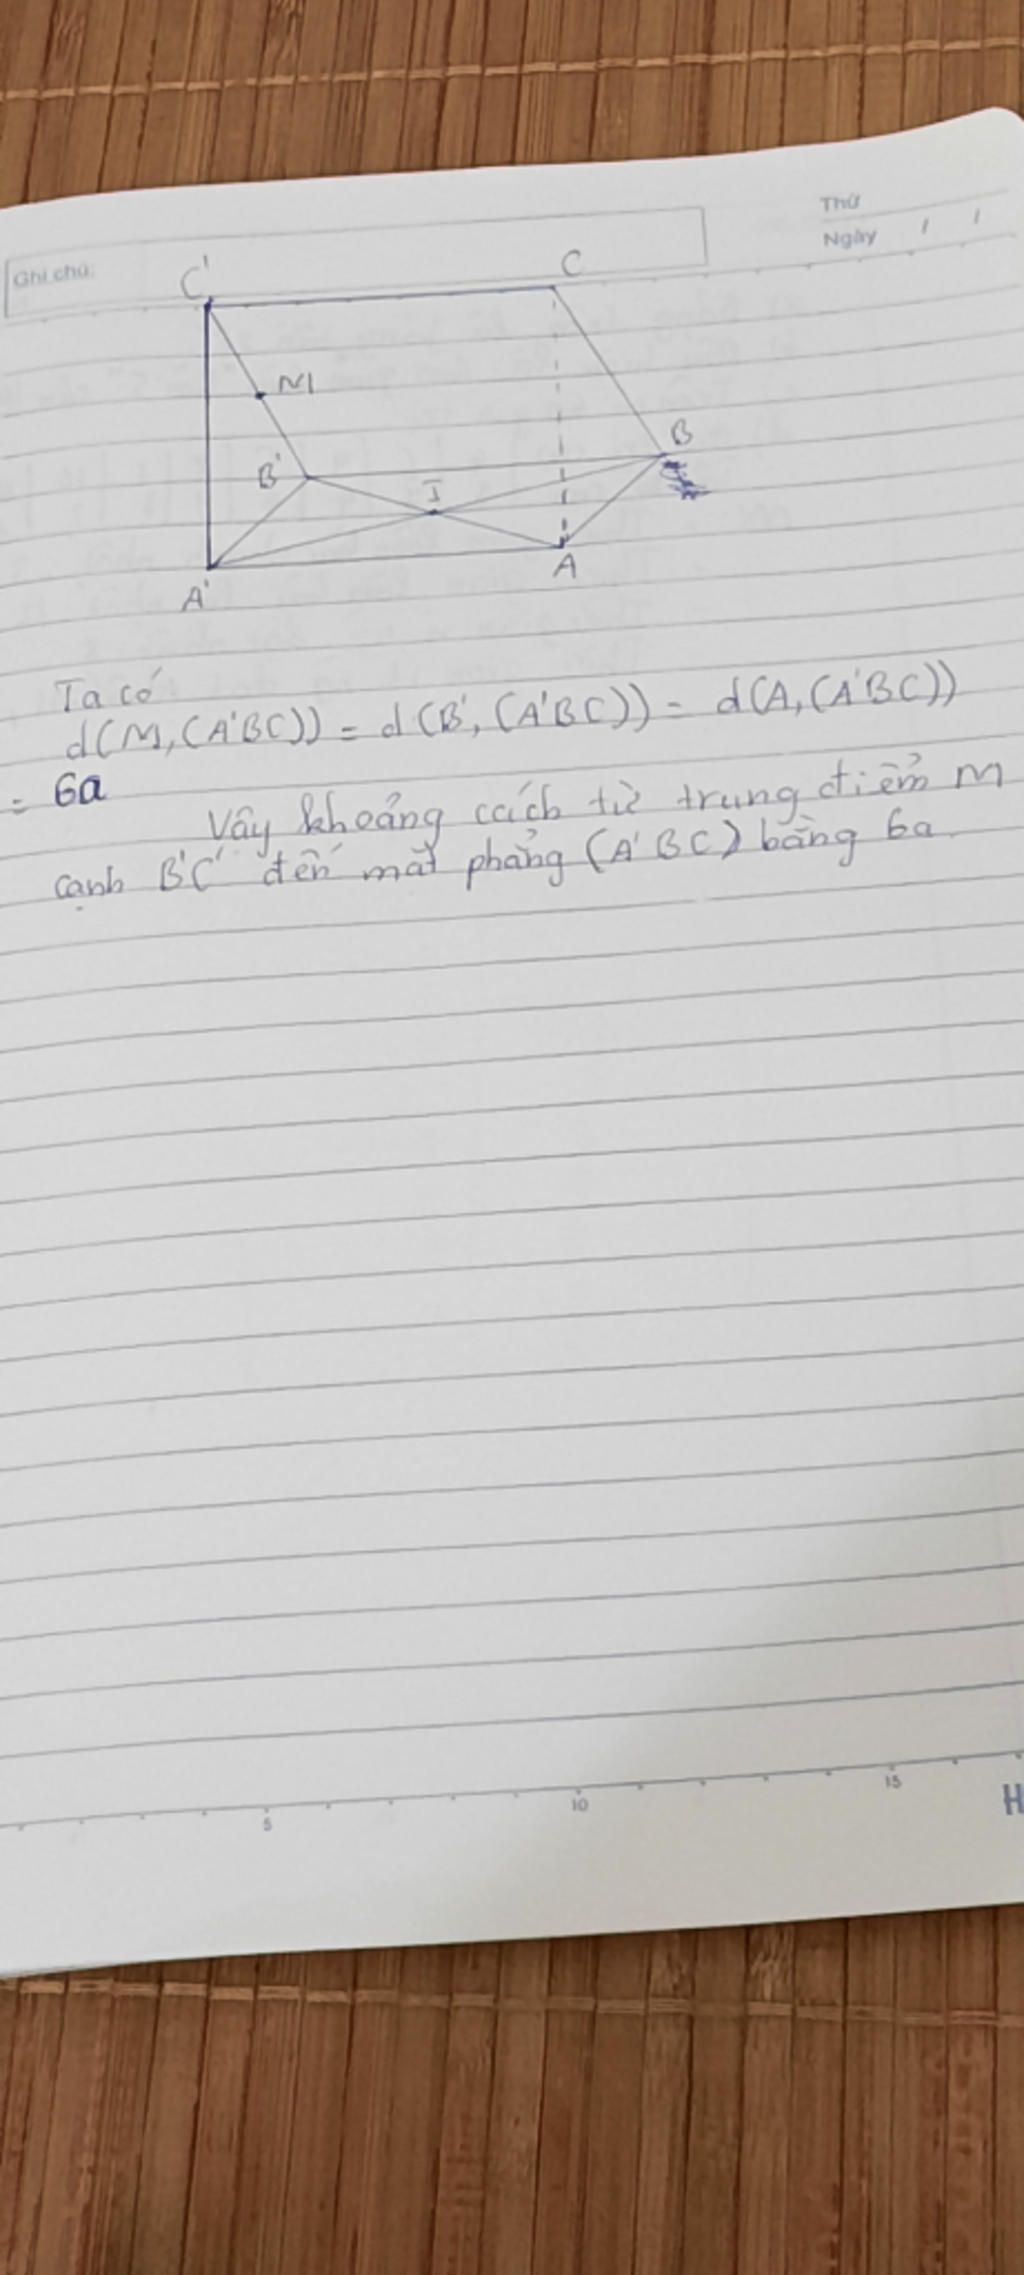 Thứ
Ngày / /
Ghi chú:
C' C
M
B
B' I
A
A'
Ta có
d(M,(A'BC)) = d(B',(A'BC)) = d(A,(A'BC))
= 6a
Vậy khoảng cách từ trung điểm M
cạnh B'C' đến mặt phẳng (A'BC) bằng 6a.
5 10 15
H